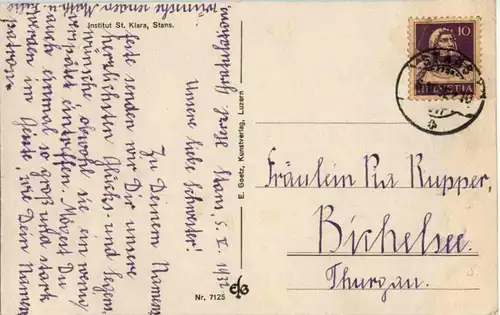 Institut St. Klara, Stans.
Gratulation!
Herz Stans, 5. I. 1932
Unsere liebe Schwester!
Zu Deinem Namens-
feste senden wir Dir unsere
herzlichsten Glücks- und Segens-
wünsche, obwohl sie ein wenig
verspätet eintreffen. Mögest Du
auch einmal so groß und stark
werden im Geiste, wie Dein Namens-
patron.
E. Goetz, Kunstverlag, Luzern
Nr. 7125
EGL
10
HELVETIA
STANS
Fräulein Pia Rupper,
Bichelsee.
Thurgau.